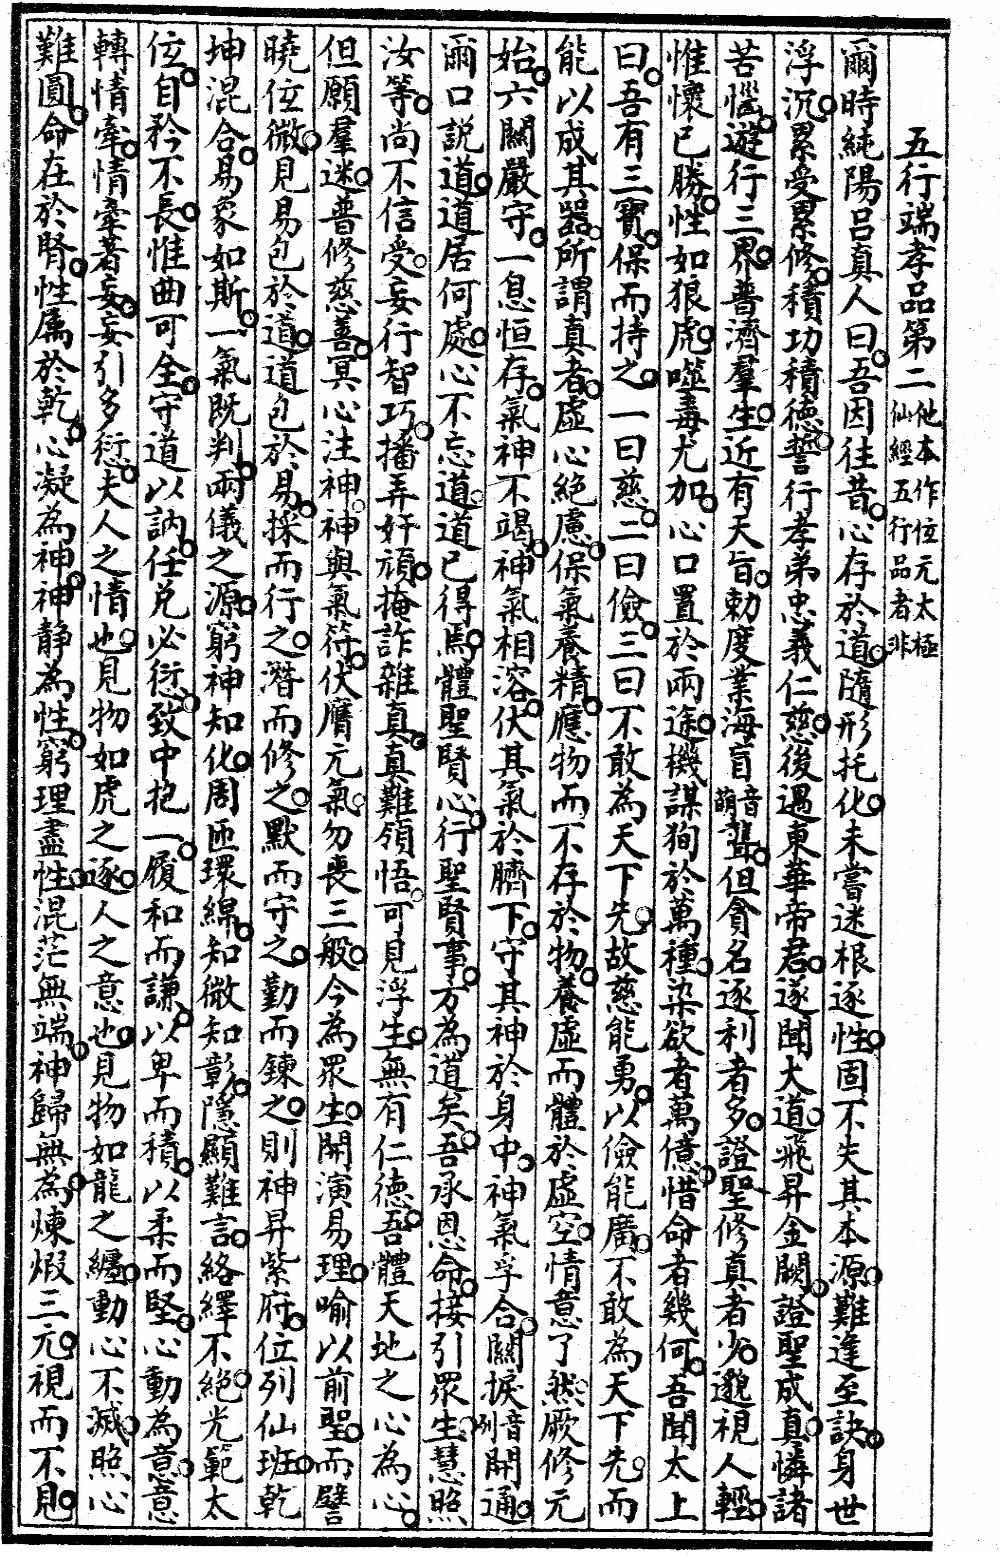 五行端孝品第二他本作位元太極仙經五行品者非
爾時純陽呂真人曰吾因往昔心存於道隨形托化未嘗迷根逐性固不失其本源難逢至訣身世
浮沉累受累修積功積德誓行孝弟忠義仁慈後遇東華帝君遂聞大道飛昇金闕證聖成真憐諸
苦惱遊行三界普濟羣生近有天旨勅度業海盲音萌聾但貪名逐利者多證聖修真者少邈視人輕
惟懷已勝性如狼虎噬毒尤加心口置於兩途機謀狥於萬種染欲者萬億惜命者幾何吾聞太上
曰吾有三寶保而持之一曰慈二曰儉三曰不敢為天下先故慈能勇以儉能廣不敢為天下先而
能以成其器所謂真者虛心絕慮保氣養精應物而不存於物養虛而體於虛空情意了然厥修元
始六關嚴守一息恒存氣神不竭神氣相溶伏其氣於臍下守其神於身中神氣孚合關捩音列開通
爾口説道道居何處心不忘道道已得焉體聖賢心行聖賢事方為道矣吾承恩命接引眾生慧照
汝等尚不信受妄行智巧播弄奸頑掩詐雜真真難領悟可見浮生無有仁德吾體天地之心為心
但願羣迷普修慈善冥心注神神與氣符伏膺元氣勿喪三般今為眾生開演易理喻以前聖而譬
曉位微見易包於道道包於易採而行之潛而修之默而守之勤而鍊之則神昇紫府位列仙班乾
坤混合易象如斯一氣既判兩儀之源窮神知化周匝環綿知微知彰隱顯難言絡繹不絕光範太
位自矜不長惟曲可全守道以訥任兌必愆致中抱一履和而謙以卑而積以柔而堅心動為意意
轉情牽情牽著妄妄引多愆夫人之情也見物如虎之逐人之意也見物如龍之纏動心不滅照心
難圓命在於腎性属於乾心凝為神神静為性窮理盡性混茫無端神歸無為煉煅三元視而不見